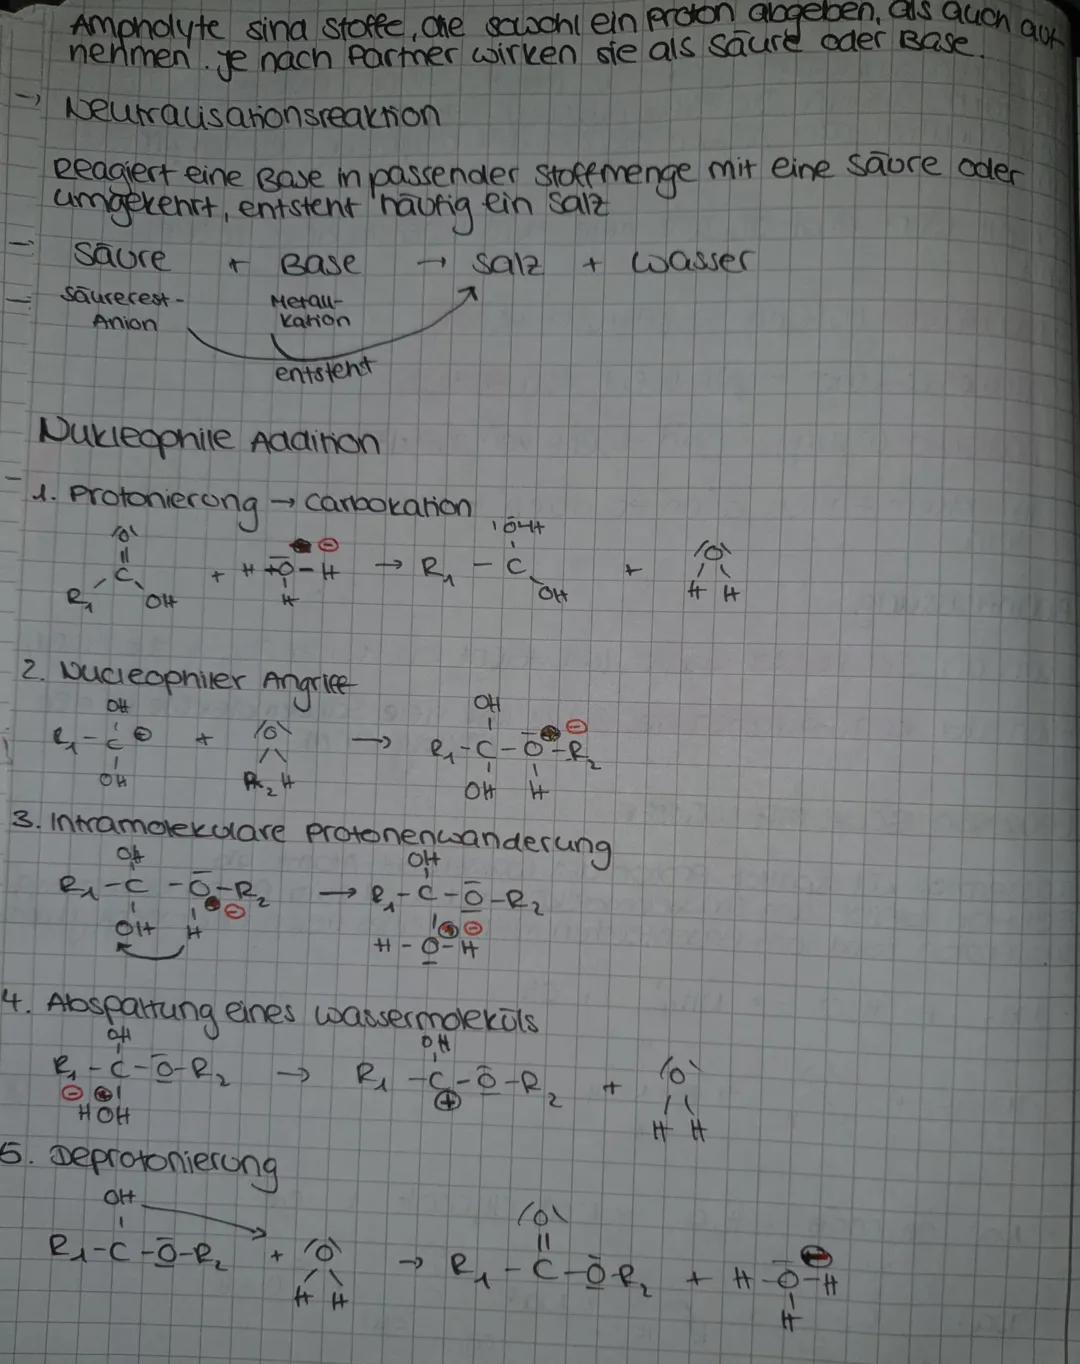 Ampholyte sind Stoffe, die sowohl ein Proton abgeben, als auch auf
nehmen. Je nach Partner wirken sie als Säure oder Base.
→ Neutralisationsreaktion
Reagiert eine Base in passender Stoffmenge mit eine Säure oder
umgekehrt, entsteht häufig ein Salz
- Säure + Base → Salz + Wasser
- Säurerest- Metall-
Anion Kation
entsteht
Nukleophile Addition
- 1. Protonierung → Carbokation
|O| IO-H ⊖
|| C + H-O-H → R₁ - C + |O|
R₁ OH H OH H H
2. Nucleophiler Angriff
OH OH ⊖
R₁-C ⊕ + |O| → R₁-C-O-R₂
OH R₂ H OH H
3. Intramolekulare Protonenwanderung
OH OH
R₁-C-O-R₂ → R₁-C-O-R₂
OH H ⊖ ⊖
H-O-H
4. Abspaltung eines Wassermoleküls
OH OH
R₁-C-O-R₂ → R₁-C-O-R₂ + |O|
⊖ ⊕ ⊕
HOH H H
5. Deprotonierung
OH |O|
R₁-C-O-R₂ + |O| → R₁-C-O-R₂ + H-O-H
H H H